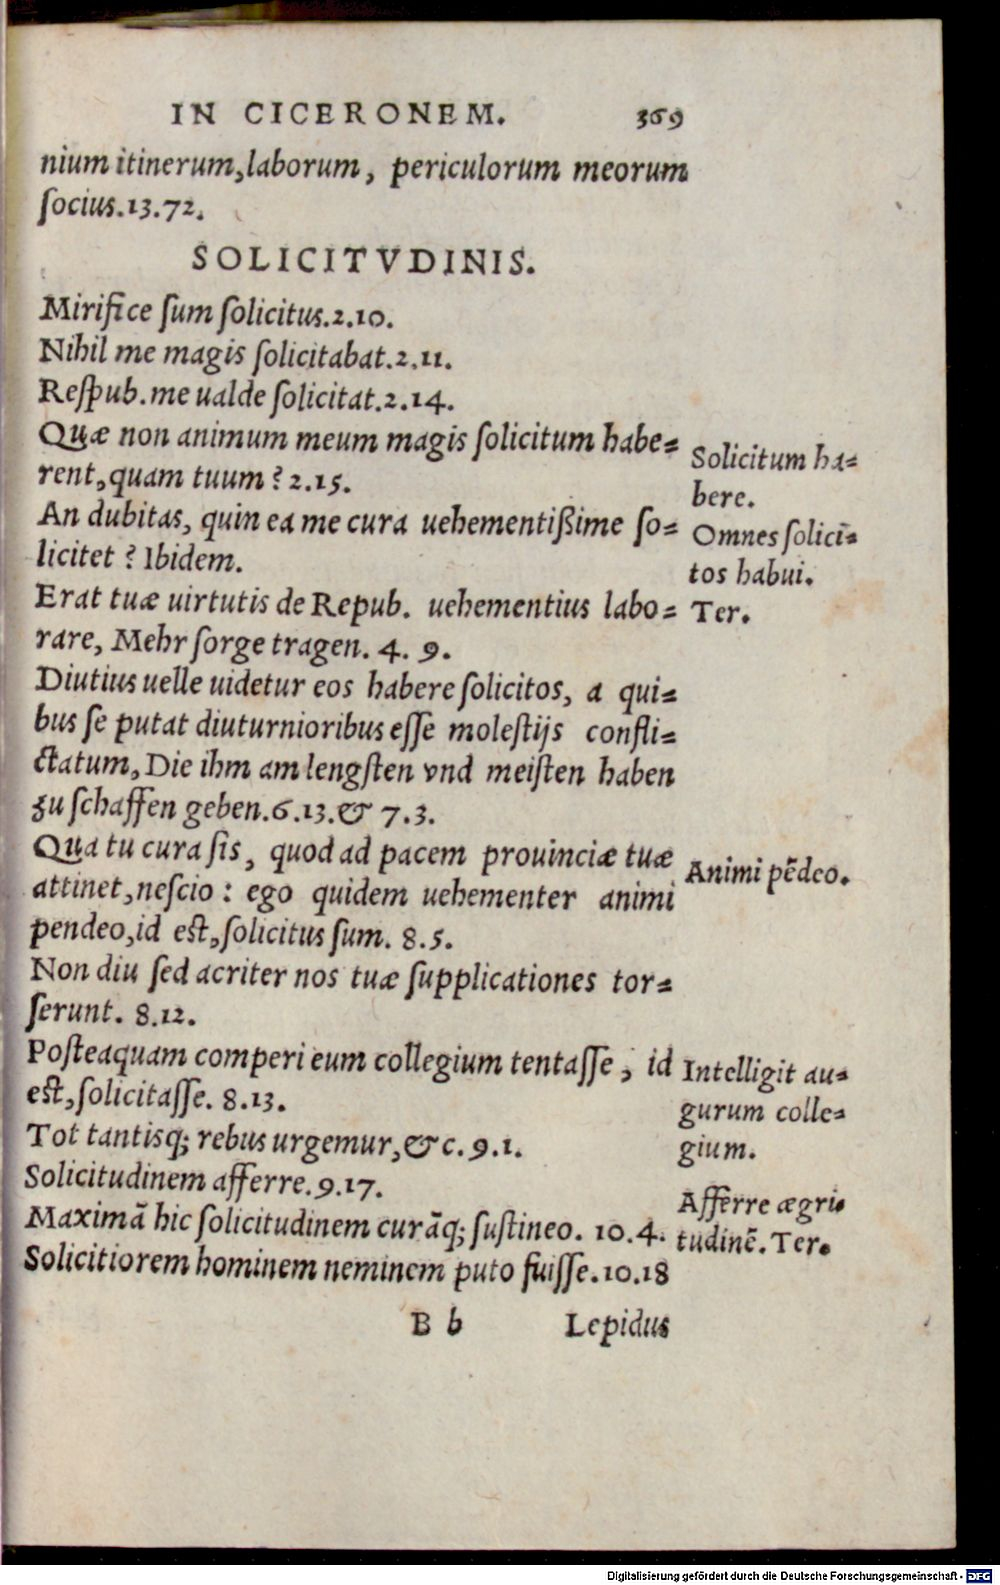 IN CICERONEM. 369
nium itinerum,laborum, periculorum meorum
ſocius.13.72.
SOLICITVDINIS.
Mirifice ſum ſolicitus.2.10.
Nihil me magis ſolicitabat.2.11.
Reſpub.me ualde ſolicitat.2.14.
Quæ non animum meum magis ſolicitum habe=
rent,quam tuum? 2.15.
An dubitas, quin ea me cura uehementißime ſo=
licitet? Ibidem.
Erat tuæ uirtutis de Repub. uehementius labo=
rare, Mehr ſorge tragen. 4. 9.
Diutius uelle uidetur eos habere ſolicitos, a qui=
bus ſe putat diuturnioribus eſſe moleſtijs confli=
ctatum, Die ihm am lengſten vnd meiſten haben
zu ſchaffen geben.6.13.& 7.3.
Qua tu cura ſis, quod ad pacem prouinciæ tuæ
attinet,neſcio: ego quidem uehementer animi
pendeo,id eſt,ſolicitus ſum. 8.5.
Non diu ſed acriter nos tuæ ſupplicationes tor=
ſerunt. 8.12.
Poſteaquam comperi eum collegium tentaſſe, id
eſt,ſolicitaſſe. 8.13.
Tot tantisq; rebus urgemur,&c.9.1.
Solicitudinem afferre.9.17.
Maximã hic ſolicitudinem curãq; ſuſtineo. 10.4.
Solicitiorem hominem neminem puto fuiſſe.10.18
Solicitum ha=
bere.
Omnes ſolici=
tos habui.
Ter.
Animi pẽdeo.
Intelligit au=
gurum colle=
gium.
Afferre ægri=
tudinẽ.Ter.
B b Lepidus
Digitalisierung gefördert durch die Deutsche Forschungsgemeinschaft - DFG